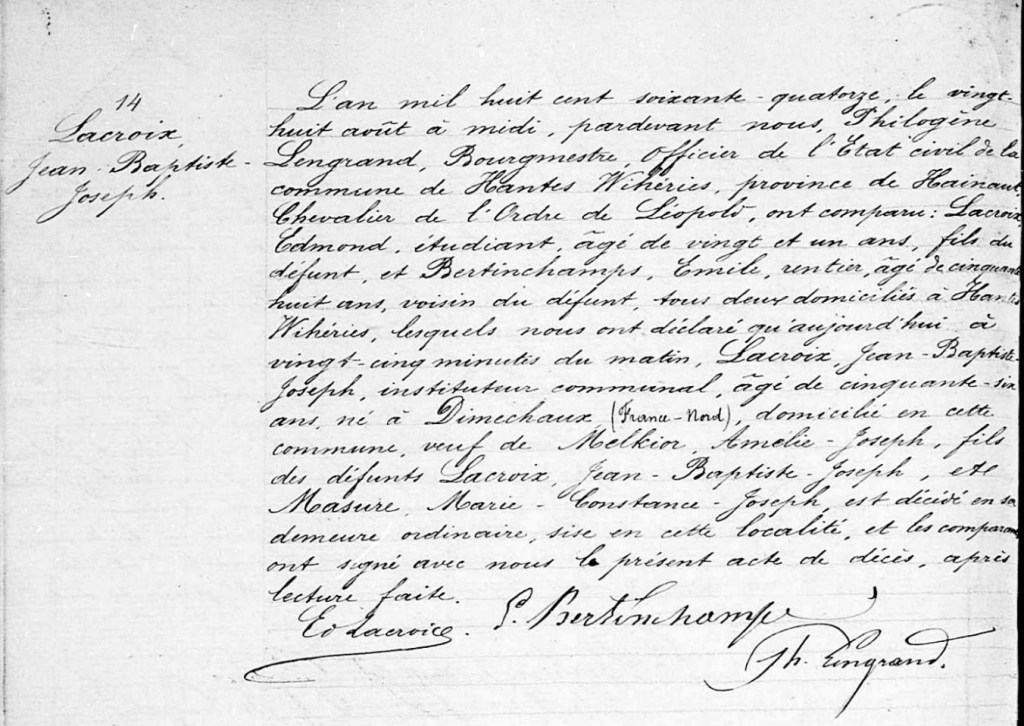 14
Lacroix,
Jean-Baptiste-
Joseph.
L'an mil huit cent soixante-quatorze, le vingt-
huit août à midi, pardevant nous, Philogène
Lengrand, Bourgmestre, Officier de l'Etat civil de la
commune de Hantes Wihéries, province de Hainaut,
Chevalier de l'Ordre de Léopold, ont comparu: Lacroix,
Edmond, étudiant, âgé de vingt et un ans, fils du
défunt, et Bertinchamps, Emile, rentier, âgé de cinquante
huit ans, voisin du défunt, tous deux domiciliés à Hantes
Wihéries, lesquels nous ont déclaré qu'aujourd'hui à
vingt-cinq minutes du matin, Lacroix, Jean-Baptiste-
Joseph, instituteur communal, âgé de cinquante-six
ans, né à Dimechaux (France-Nord), domicilié en cette
commune, veuf de Melkior, Amélie-Joseph, fils
des défunts Lacroix, Jean-Baptiste-Joseph, et
Masure, Marie-Constance-Joseph, est décédé en sa
demeure ordinaire, sise en cette localité, et les comparants
ont signé avec nous le présent acte de décès, après
lecture faite.
Ed Lacroix. E. Bertinchamps
Ph. Lengrand.